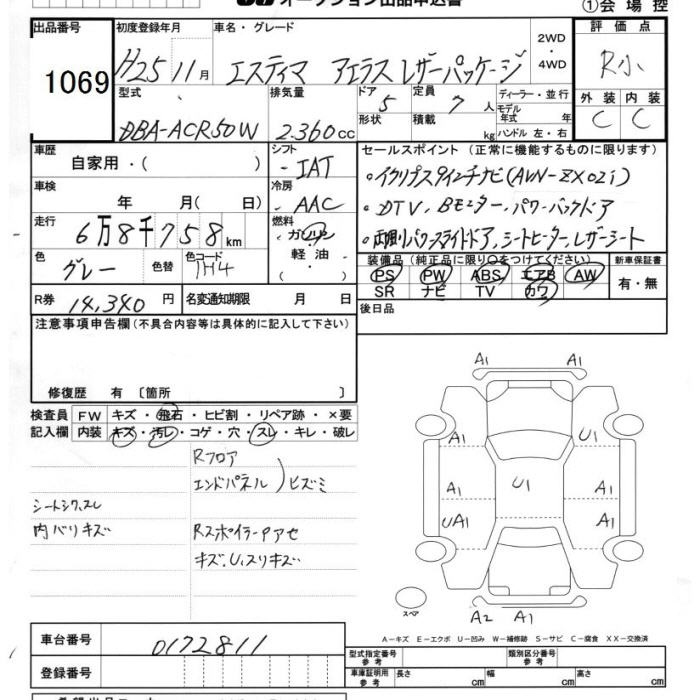 オークション出品申込書
①会場控
出品番号 初度登録年月 車名・グレード 2WD・4WD 評価点
1069 H25 11月 エスティマ アエラス レザーパッケージ R小
型式 排気量 ドア 5 定員 7人 ディーラー・並行 外装 内装
DBA-ACR50W 2.360cc 形状 積載 kg モデル年式 年式 ハンドル 左・右 C C
車歴 シフト セールスポイント(正常に機能するものに限ります)
自家用・( ) IAT
・イクリプス9インチナビ(AVN-ZX02i)
車検 年 月( 日) 冷房 AAC
・DTV、Bモニター、パワーバックドア
走行 6万8千758km 燃料 ガソリン 軽油・( )
・両側パワースライドドア、シートヒーター、レザーシート
色 グレー 色替 色コード 1H4
装備品(純正品に限り○をつけてください) 新車保証書
PS PW ABS エアB AW 有・無
SR ナビ TV カワ
R券 14,340円 名変通知期限 月 日 後日品
注意事項申告欄(不具合内容等は具体的に記入して下さい)
修復歴 有〔箇所 〕
検査員 FW キズ・飛石・ヒビ割・リペア跡・×要
記入欄 内装 キズ・汚レ・コゲ・穴・スレ・キレ・破レ
Rフロア
エンドパネル ) ヒズミ
シートシワ、スレ
内バリキズ Rスポイラーアセ
キズ、U、スリキズ
A1 A1
A1 U1
A1 U1 A1
UA1 A1
スペア A2 A1
A-キズ E-エクボ U-凹み W-補修跡 S-サビ C-腐食 XX-交換済
車台番号 0172811 型式指定番号 参考 類別区分番号 参考
登録番号 車庫証明用 参考 長さ cm 幅 cm 高さ cm